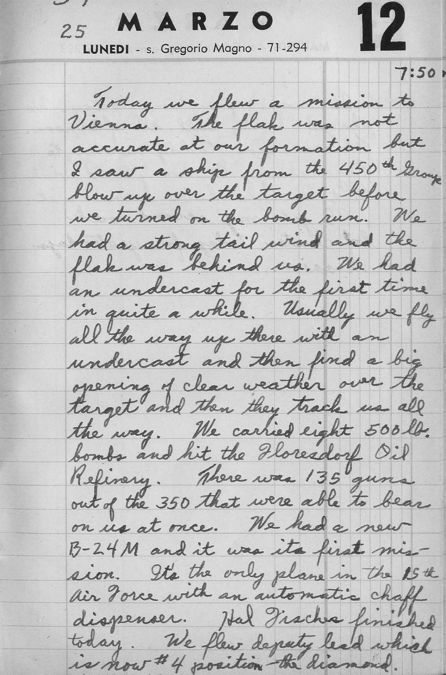 25
MARZO
12
LUNEDI - s. Gregorio Magno - 71-294
7:50
Today we flew a mission to
Vienna. The flak was not
accurate at our formation but
I saw a ship from the 450th Group
blow up over the target before
we turned on the bomb run. We
had a strong tail wind and the
flak was behind us. We had
an undercast for the first time
in quite a while. Usually we fly
all the way up there with an
undercast and then find a big
opening of clear weather over the
target and then they track us all
the way. We carried eight 500 lb.
bombs and hit the Floresdorf Oil
Refinery. There was 135 guns
out of the 350 that were able to bear
on us at once. We had a new
B-24M and it was its first mis-
sion. It's the only plane in the 15th
Air Force with an automatic chaff
dispenser. Hal finished
today. We flew deputy lead which
is now #4 position - the diamond.